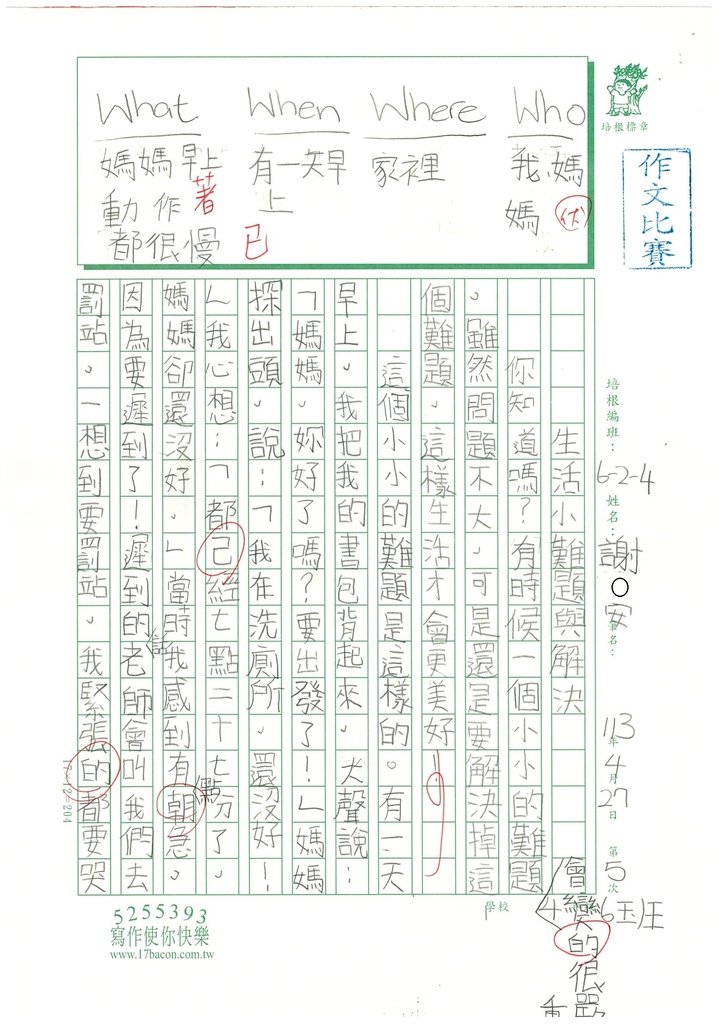 What
When
Where
Who
媽媽早上
動作
都很慢
著
有一天早
上
已
家裡
我、媽
媽
伏
培根標章
作文比賽
培根編班：6-2-4
姓名：謝○安
113年4月27日
第5次
6玉班
學校
生活小難題與解決
你知道嗎？有時候一個小小的難題
會變的很
。雖然問題不大，可是還是要解決掉這
個難題。這樣生活才會更美好！
這個小小的難題是這樣的。有一天
早上。我把我的書包背起來，大聲說：
「媽媽，妳好了嗎？要出發了！」媽媽
探出頭，說：「我在洗廁所，還沒好！
」我心想：「都己經七點二十七分了，
點
媽媽卻還沒好。」當時我感到有點朝急。
因為要遲到了！遲到的話老師會叫我們去
罰站。一想到要罰站，我緊張的都要哭
17×12=204
5255393
寫作使你快樂
www.17bacon.com.tw